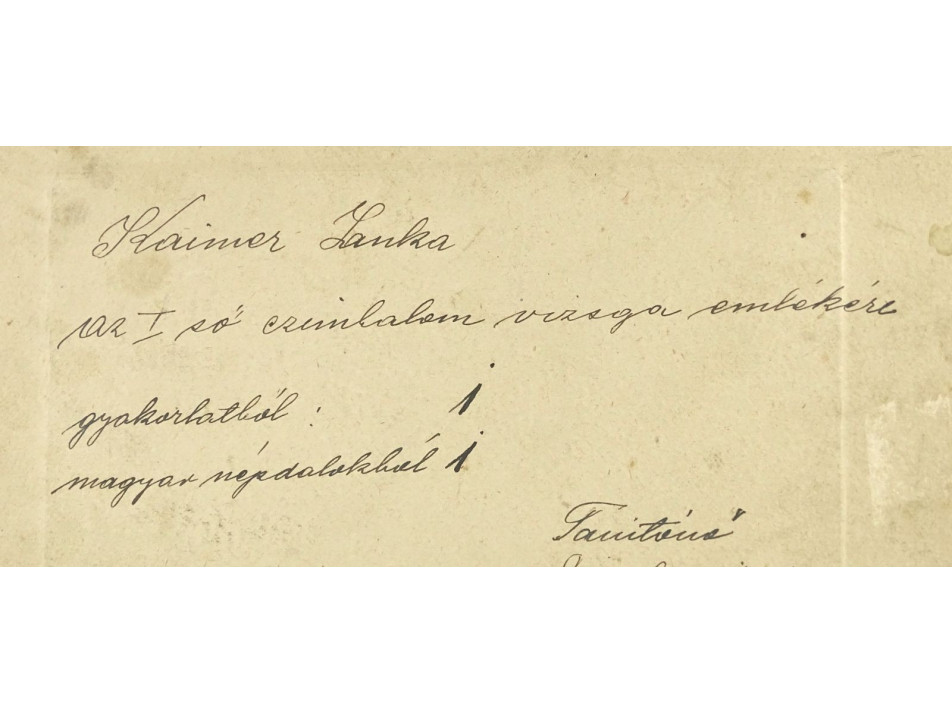 Kaimer Lanka
az I ső czimbalom vizsga emlékére
gyakorlatból : 1
magyar népdalokból 1
Tanítónő